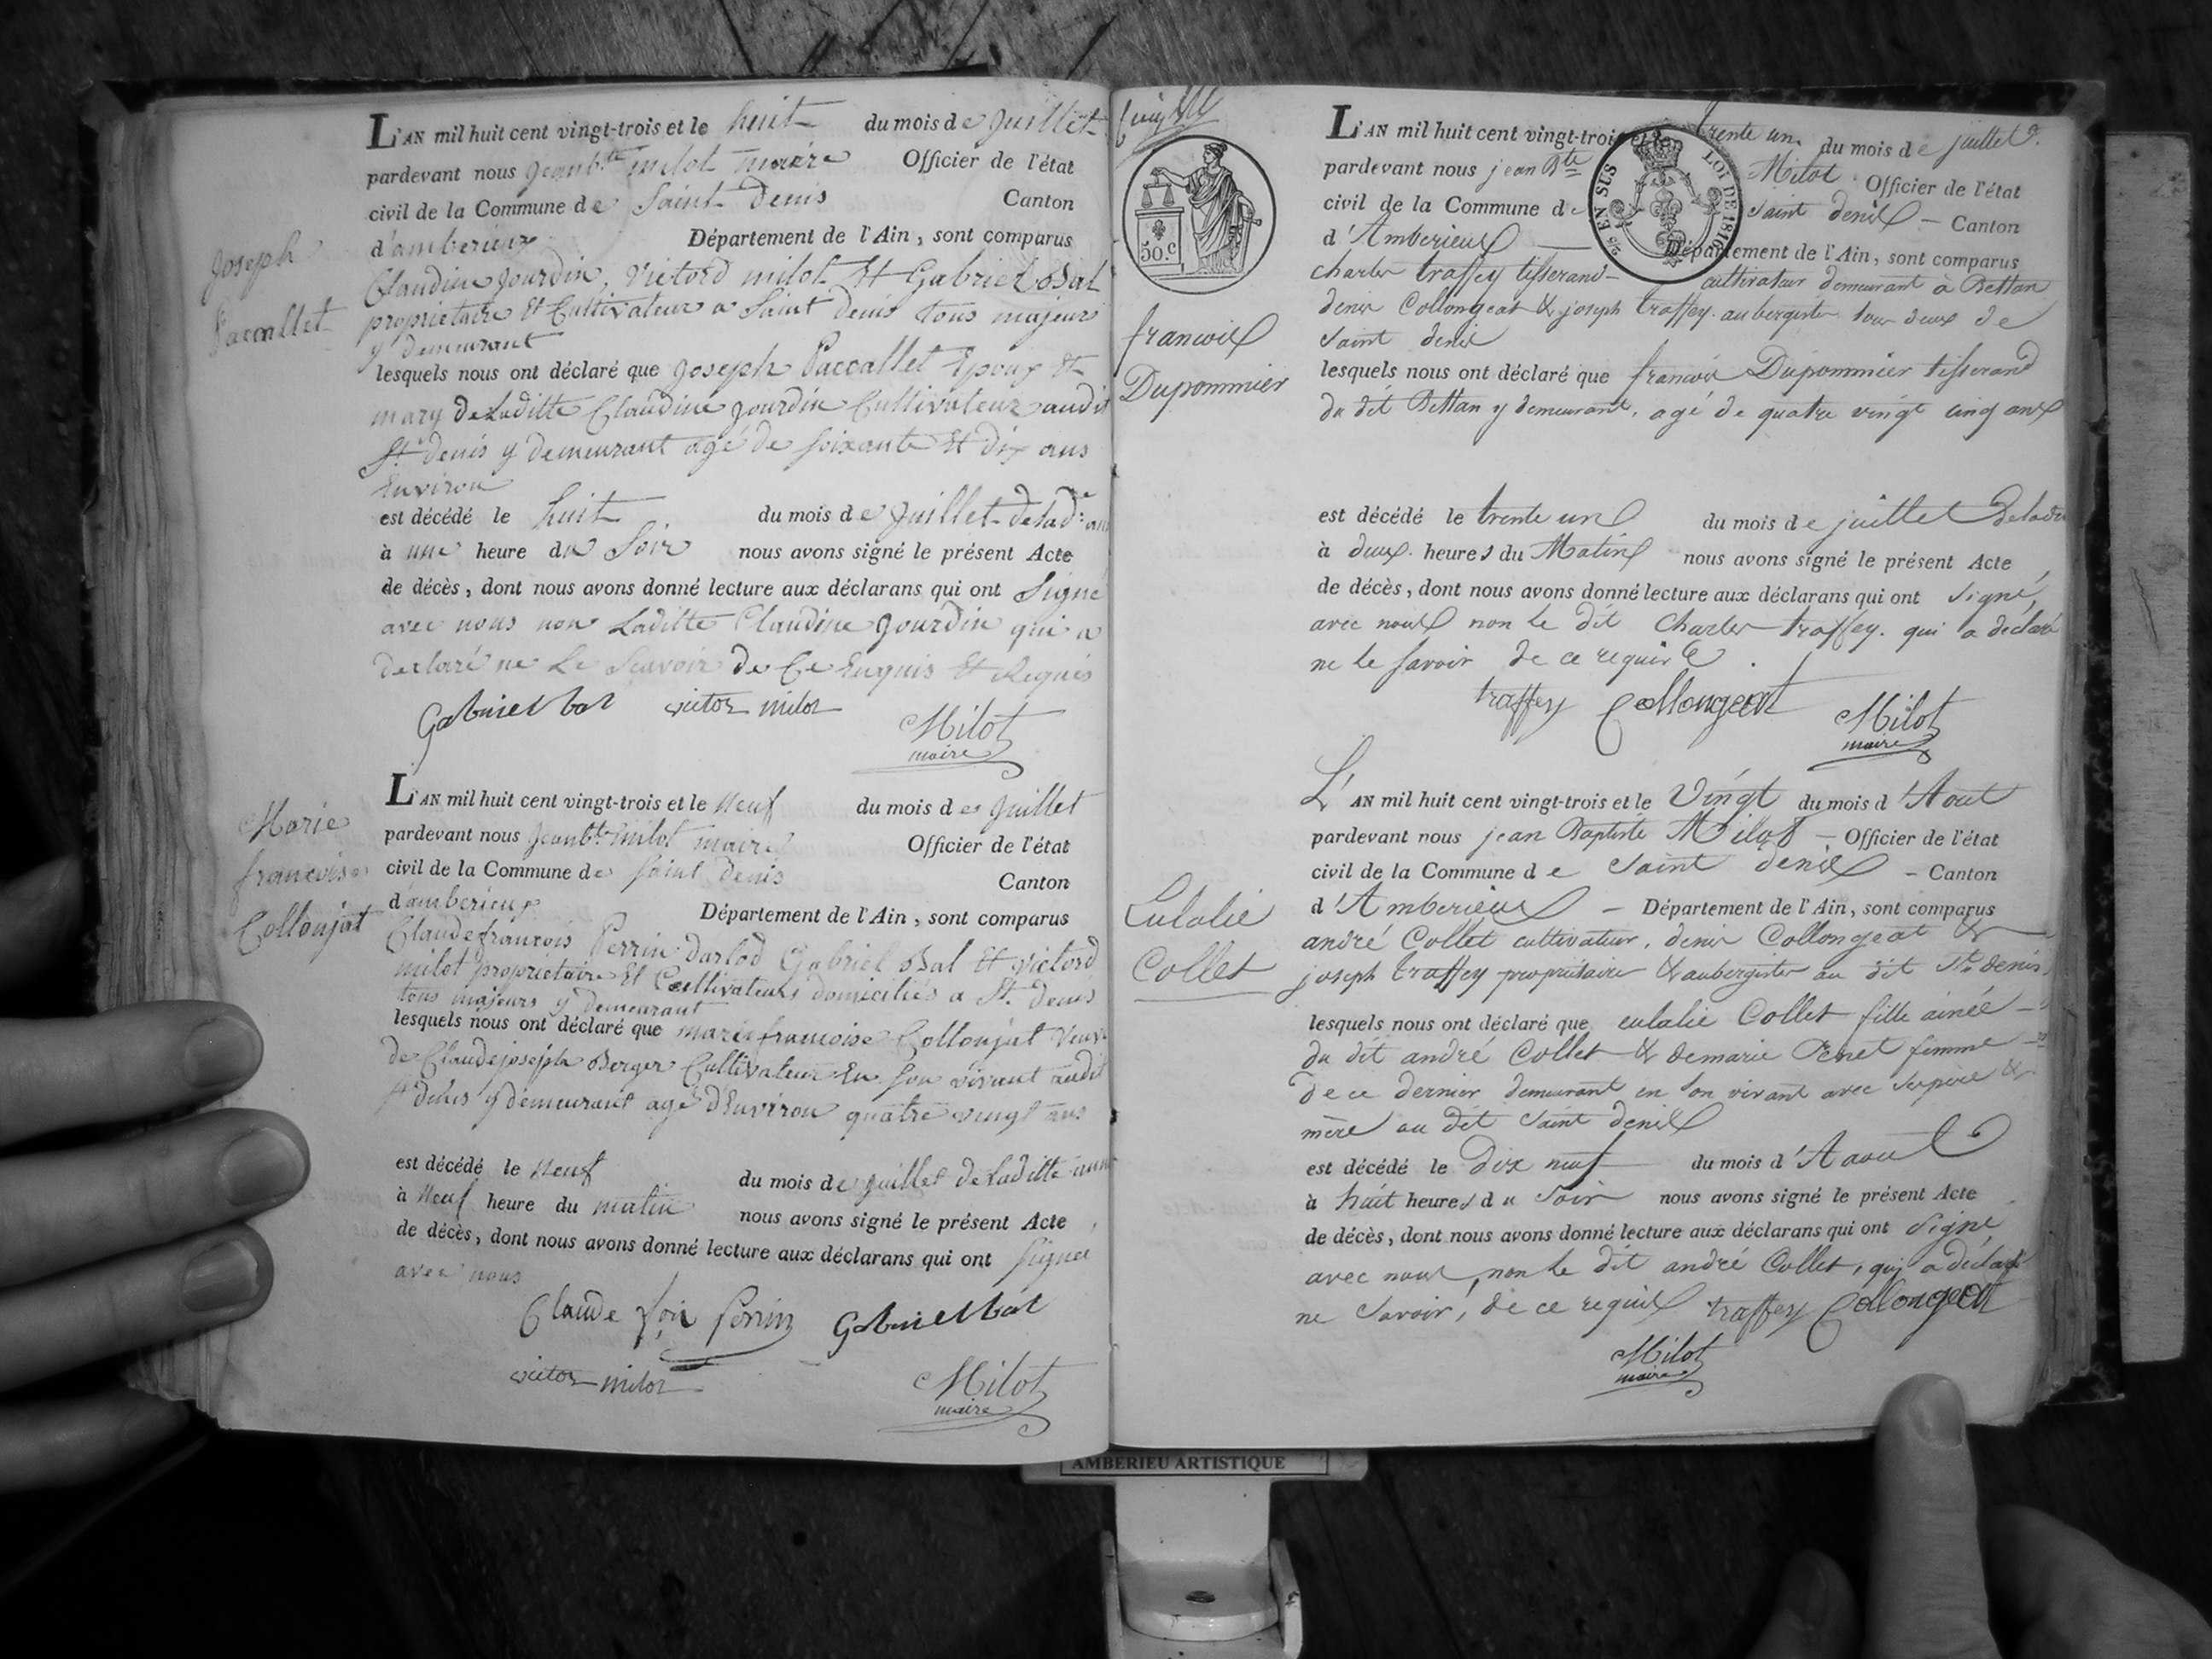 Joseph
Paccallet
L'AN mil huit cent vingt-trois et le huit du mois de Juillet
pardevant nous Jean bte milot maire Officier de l'état
civil de la Commune de Saint Denis Canton
d'amberieux Département de l'Ain, sont comparus
Claudine Jourdin, Victord milot Et Gabriel Bal
proprietaire Et Cultivateur a Saint Denis tous majeurs
y demeurant
lesquels nous ont déclaré que Joseph Paccallet Epoux Et
mary de Laditte Claudine Jourdin Cultivateur audit
St Denis y demeurant agé de soixante Et dix ans
Environ
est décédé le huit du mois de Juillet de lad.e an
à une heure du Soir nous avons signé le présent Acte
de décès, dont nous avons donné lecture aux déclarans qui ont Signé
avec nous non Laditte Claudine Jourdin qui a
declaré ne Le Scavoir de Ce Enquis Et Requis
Gabriel bal victor milot Milot
maire
Marie
francoise
Collonjat
L'AN mil huit cent vingt-trois et le Neuf du mois de Juillet
pardevant nous Jean bte milot maire Officier de l'état
civil de la Commune de Saint Denis Canton
d'amberieux Département de l'Ain, sont comparus
Claude françois Perrin Darlod Gabriel Bal Et Victord
milot proprietaire Et Cultivateurs domiciliés a St. Denis
tous majeurs y demeurant
lesquels nous ont déclaré que marie francoise Collonjat Veuve
de Claude joseph Berger Cultivateur En Son vivant audit
St Denis y demeurant agé d'Environ quatre vingt ans
est décédé le Neuf du mois de Juillet de Laditte année
à Neuf heure du matin nous avons signé le présent Acte
de décès, dont nous avons donné lecture aux déclarans qui ont Signés
avec nous
Claude foix Perrin Gabriel bal
victor milot Milot
maire
50.C
francois
Dupommier
L'AN mil huit cent vingt-trois et le trente un du mois de juillet
EN SUS LOI DE 1816
pardevant nous jean Bte Milot Officier de l'état
civil de la Commune de Saint denis Canton
d'Amberieux Département de l'Ain, sont comparus
charles traffey tisserand cultivateur demeurant à Bettan
denis Collongeat & joseph traffey aubergiste tous deux de
Saint denis
lesquels nous ont déclaré que francois Dupommier tisserand
du dit Bettan y demeurant, agé de quatre vingt cinq ans
est décédé le trente un du mois de juillet
à deux heures du Matin nous avons signé le présent Acte
de décès, dont nous avons donné lecture aux déclarans qui ont signé,
avec nous non le dit Charles traffey. qui a déclaré
ne le savoir de ce requis
traffey Collongeat Milot
maire
Eulalie
Collet
L'AN mil huit cent vingt-trois et le Vingt du mois d'Aout
pardevant nous jean Baptiste Milot Officier de l'état
civil de la Commune de Saint denis Canton
d'Amberieux Département de l'Ain, sont comparus
andré Collet cultivateur, denis Collongeat &
joseph traffey proprietaire & aubergiste au dit St. denis
lesquels nous ont déclaré que eulalie Collet fille ainée
du dit andré Collet & de marie Penet femme
de ce dernier demeurant en son vivant avec ses père &
mère au dit Saint denis
est décédé le Dix neuf du mois d'Aaout
à huit heures du Soir nous avons signé le présent Acte
de décès, dont nous avons donné lecture aux déclarans qui ont signé,
avec nous, non le dit andré Collet, qui a déclaré
ne savoir, de ce requis traffey Collongeat
Milot
maire
AMBERIEU ARTISTIQUE